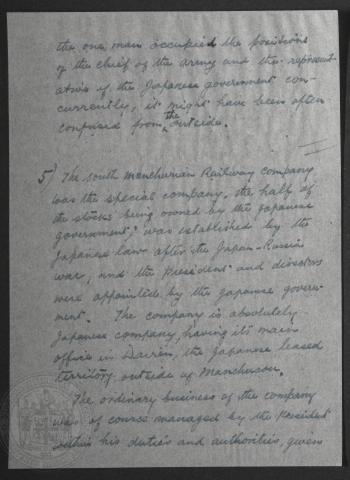 the one man occupied the positions
of the chief of the army and the represent-
ative of the Japanese government con-
currently, it might have been often
confused from the outside.
5) The south Manchurian Railway company
was the special company, the half of
the stocks being owned by the Japanese
government, was established by the
Japanese law after the Japan-Russia
war, and the President and directors
were appointed by the Japanese govern-
ment. The company is absolutely
Japanese company, having its main
office in Dairen, the Japanese leased
territory outside of
The ordinary business of the company
was of course managed by the President
within his duties and authorities, given